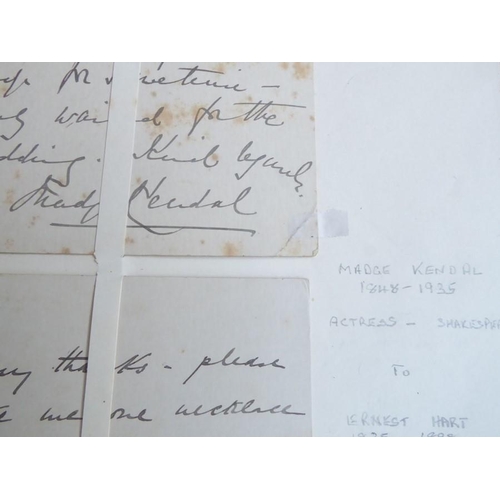 for
waited for the
wedding. Kind regards.
Madge Kendal
many thanks - please
me one necklace
MADGE KENDAL
1848-1935
ACTRESS - SHAKESPE
TO
ERNEST HART